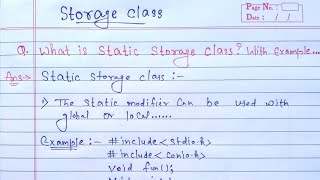 Storage class
Page No.:
Date: / /
Q. What is Static Storage class? With Example...
Ans:-> Static Storage class :-
1) The Static modifier can be used with
global or local......
Example :- #include<stdio.h>
#include<conio.h>
void fun();